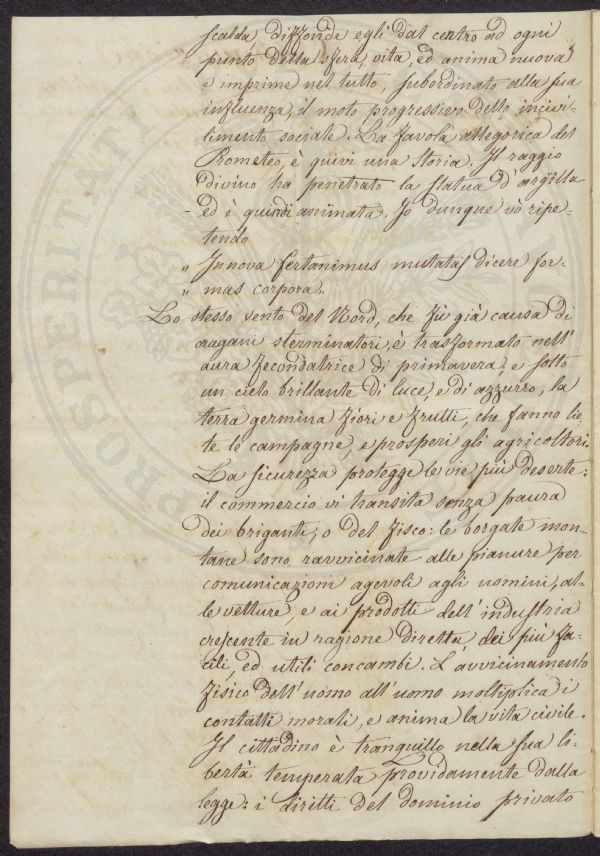 scalda diffonde egli dal centro ad ogni
punto della sfera, vita, ed anima nuova
e imprime nel tutto, subordinato alla sua
influenza, il moto progressivo dello incivi-
limento sociale. La favola allegorica del
Prometeo, è quivi una storia. Il raggio
divino ha penetrato la statua d'argilla
ed è quindi animata. Io dunque vò ripe-
tendo
„ In nova fert animus mutatas dicere for-
„ mas corpora„
Lo stesso vento del Nord, che fù già causa di
oragani sterminatori, è trasformato nell'
aura fecondatrice di primavera, e sotto
un cielo brillante di luce, e di azzurro, la
terra germina fiori e frutti, che fanno lie-
te le campagne, e prosperi gli agricoltori.
La sicurezza protegge le vie più deserte:
il commercio vi transita senza paura
dei briganti, o del fisco: le borgate mon-
tane sono ravvicinate alle pianure per
comunicazioni agevoli agli uomini, al-
le vetture, e ai prodotti dell'industria
crescente in ragione diretta dei più fa-
cili, ed utili concambi. L'avvicinamento
fisico dell'uomo all'uomo moltiplica i
contatti morali, e anima la vita civile.
Il cittadino è tranquillo nella sua li-
bertà temperata providamente dalla
legge: i diritti del dominio privato
PROSPERITATI